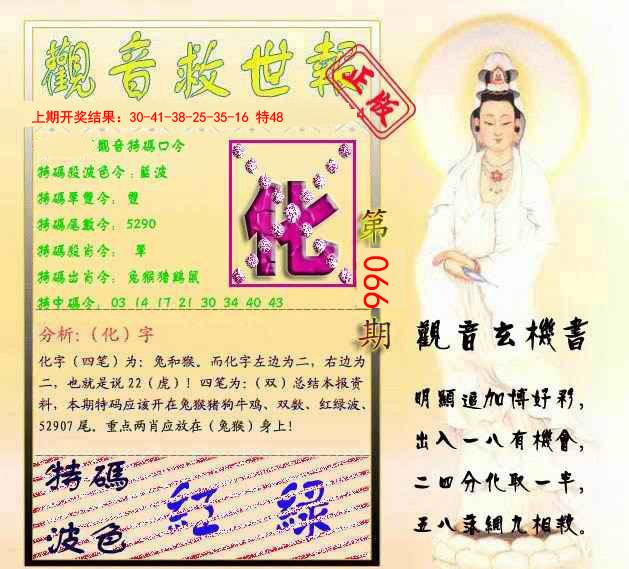 觀音救世報
正版
上期开奖结果：30-41-38-25-35-16 特48
觀音特碼口令
特碼殺波色令：藍波
特碼單雙令：雙
特碼尾數令：5290
特碼殺肖令：單
特碼出肖令：兔猴猪鷄鼠
特中碼令：03 14 17 21 30 34 40 43
化
第066期
分析：（化）字
化字（四笔）为：兔和猴。而化字左边为二，右边为
二，也就是说22（虎）！四笔为：（双）总结本报资
料，本期特码应该开在兔猴猪狗牛鸡、双数、红绿波、
52907尾。重点两肖应放在（兔猴）身上！
特碼
波色
紅 綠
觀音玄機書
明顯追加博好彩，
出入一八有機會，
二四分化取一半，
五八落網九相救。